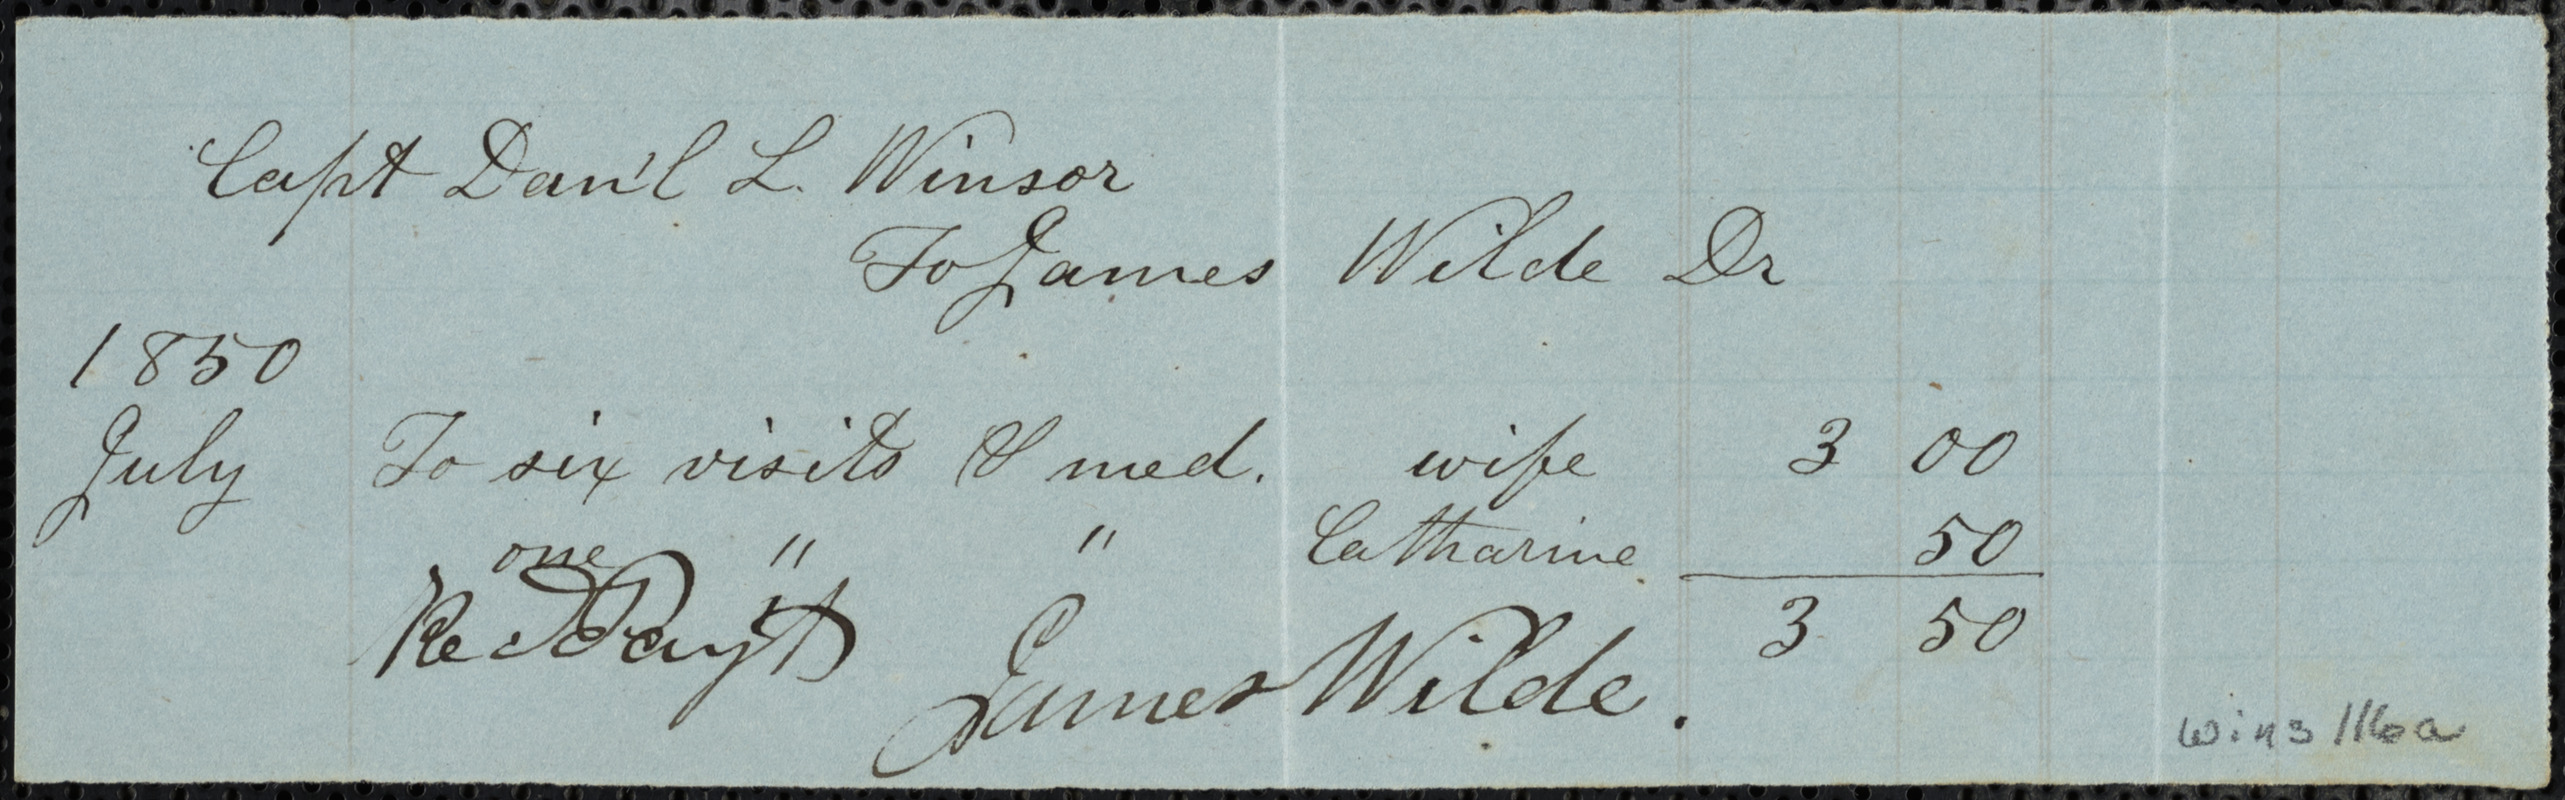 Capt Dan'l L. Winsor
To James Wilde Dr
1850
July To six visits & med. wife 3 00
one " " Catharine 50
3 50
Rec'd Pay't
James Wilde.
wins 116a